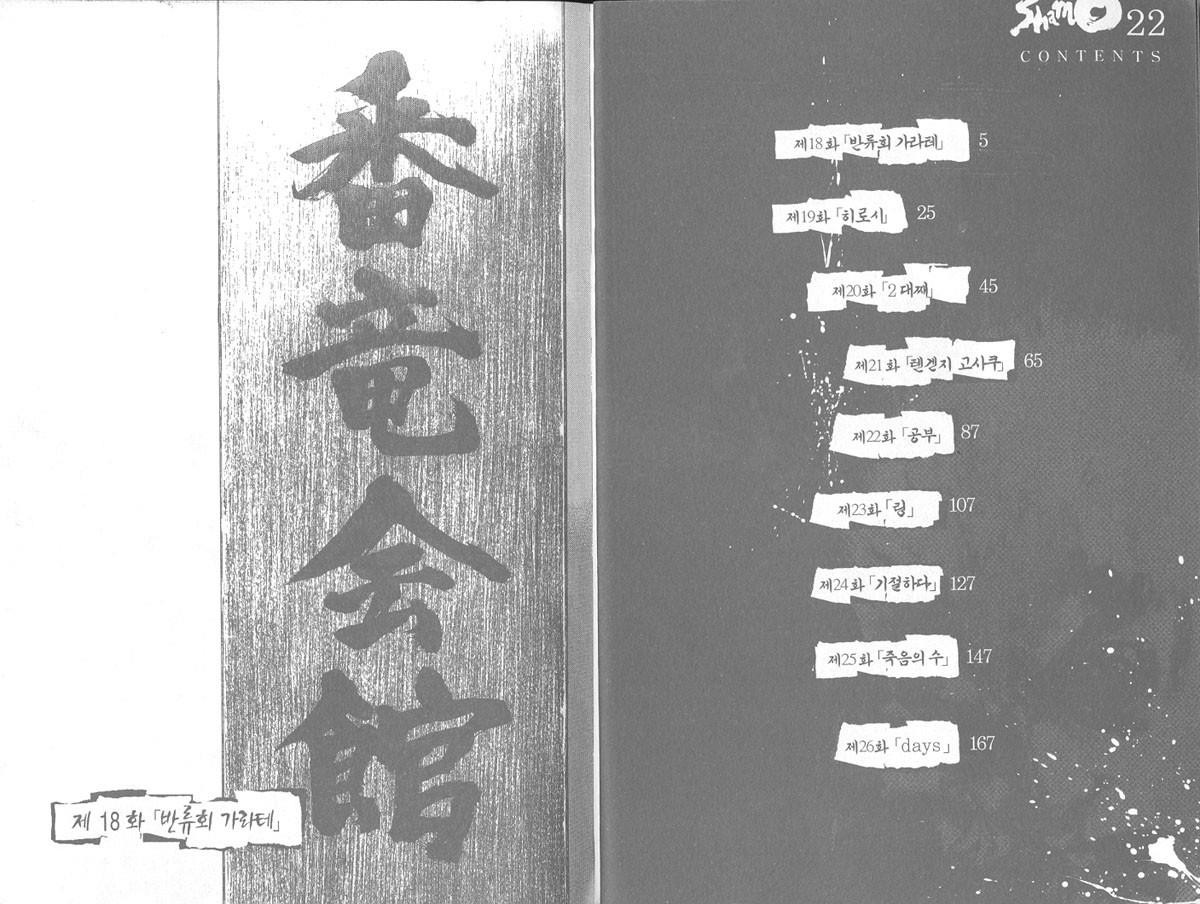 番
竜
会
館
제 18 화 「반류회 가라테」
Shamo 22
CONTENTS
제18화 「반류회 가라테」 5
제19화 「히로시」 25
제20화 「2 대째」 45
제21화 「텐겐지 고사쿠」 65
제22화 「공부」 87
제23화 「링」 107
제24화 「기절하다」 127
제25화 「죽음의 수」 147
제26화 「days」 167